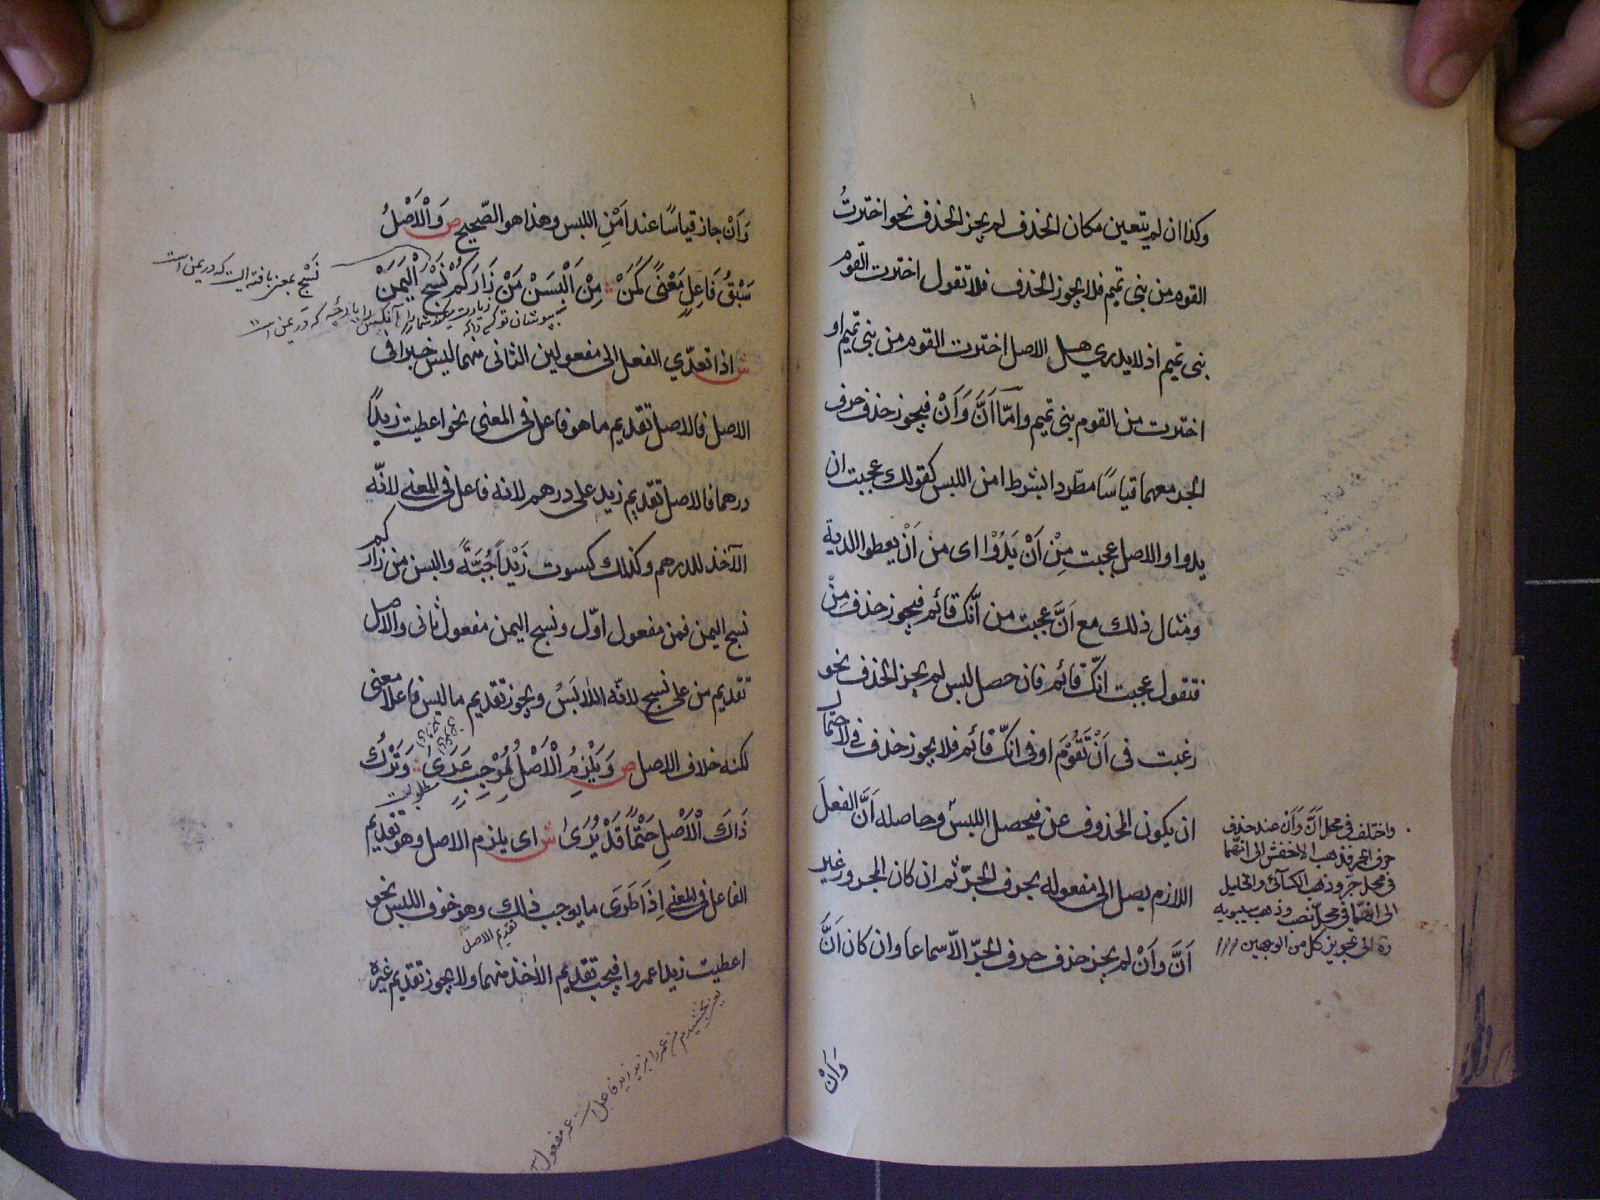 وكذا ان لم يتعين مكان الحذف لم يجز الحذف نحو اخترتُ
القوم من بني تميم فلا يجوز الحذف فلا تقول اخترت القوم
بني تميم اذ لا يدري هل الاصل اخترت القوم من بني تميم او
اخترت من القوم بني تميم وامّا اَنَّ وَاَنْ فيجوز حذف حرف
الجر معهما قياسًا مطّردا بشرط امن اللبس كقولك عجبت ان
يدوا والاصل عجبت مِنْ اَنْ يَدُوْا اى من اَنْ يعطوا الدية
ومثال ذلك مع اَنَّ عجبت من اَنَّك قائم فيجوز حذف مِنْ
فتقول عجبت انّك قائم فان حصل لبس لم يجز الحذف نحو
رغبت فى اَنْ تَقُوْمَ او فى انّك قائم فلا يجوز حذف فى لاحتمال
ان يكون المحذوف عن فيحصل اللبس وحاصله اَنَّ الفعلَ
اللازم يصل الى مفعوله بحرف الجرّ ثم ان كان المجرور غير
اَنَّ وَاَنْ لم يجز حذف حرف الجرّ الّا سماعا وان كان اَنَّ
واختلف فى محل اَنَّ وَاَنْ عند حذف
حرف الجر فذهب الاخفش الى انّهما
فى محل جر وذهب الكسائى والخليل
الى انهما فى محل نصب وذهب سيبويه
ره الى تجويز كل من الوجهين
وَاَنْ
وَاَنْ جاز قياسًا عند اَمْنِ اللبس وهذا هو الصّحيح ص وَالْاَصْلُ
سَبْقُ فَاعِلٍ مَعْنًى كَمَنْ مِنْ اَلْبِسَنْ مَنْ زَارَكُمْ نَسْجَ الْيَمَنْ
نَسْج بمعنى بافته است كه در يمن است
ش اذا تعدّي الفعل الى مفعولين الثانى منهما ليس خبرا فى
الاصل فالاصل تقديم ما هو فاعل فى المعنى نحو اعطيت زيدًا
درهما فالاصل تقديم زيد على درهم لانه فاعل فى المعنى لانّه
الآخذ للدرهم وكذلك كسوت زَيْداً جُبَّةً والبس من زاركم
نسج اليمن فمن مفعول اوّل ونسج اليمن مفعول ثانى والاصل
تقديم من على نسج لانّه اللابَسُ ويجوز تقديم ما ليس فاعلا معنى
لكنه خلاف الاصل ص وَيَلْزِمُ الْاَصْلُ لِمُوْجِبٍ عَرَى وَتَرْكُ
ذَاكَ الْاَصْلِ حَتْمًا قَدْ يُرَى ش اى يلزم الاصل وهو تقديم
الفاعل فى المعنى اِذَا طَرَى ما يوجب ذلك وهو خوف اللبس نحو
تقديم الاصل
اعطيت زيدا عمروا فيجب تقديم الاخذ منهما ولا يجوز تقديم غيره